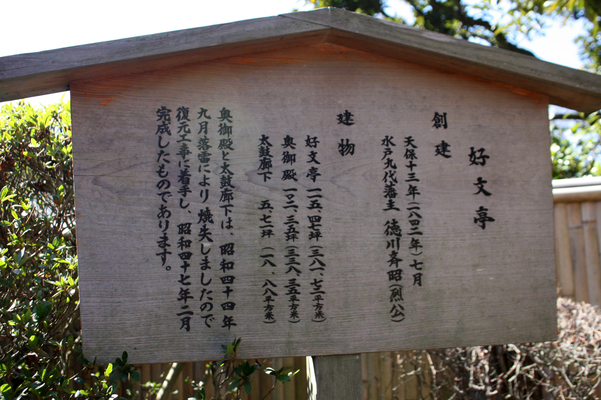 好文亭
創建
天保十三年(一八四二年)七月
水戸九代藩主 徳川斉昭(烈公)
建物
好文亭 一一五.四七坪(三八一.七二平方米)
奥御殿 一〇二.三五坪(三三八.三五平方米)
太鼓廊下 五.七一坪(一八.八八平方米)
奥御殿と太鼓廊下は、昭和四十四年
九月落雷により焼失しましたので
復元工事に着手し、昭和四十七年二月
完成したものであります。